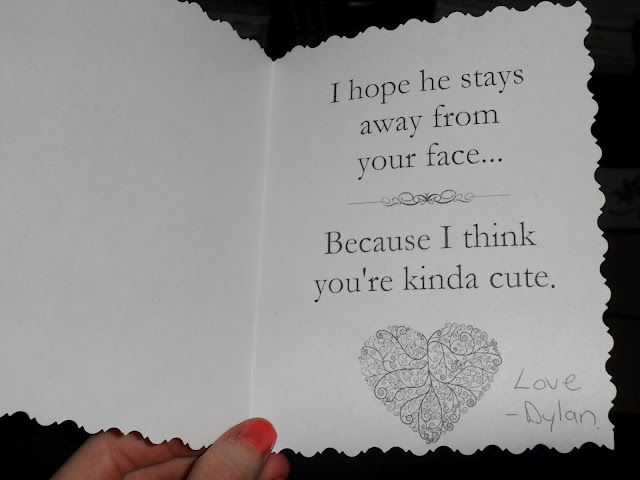 I hope he stays
away from
your face...
Because I think
you're kinda cute.
Love
-Dylan.